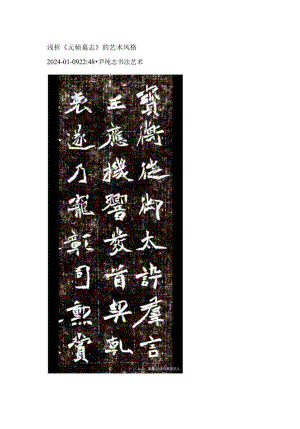 浅析《元桢墓志》的艺术风格
2024-01-0922:48•尹纯志书法艺术
寶衡徙御太訊羣言
王應機響發首契乾
衷遂乃寵彰司勳賞